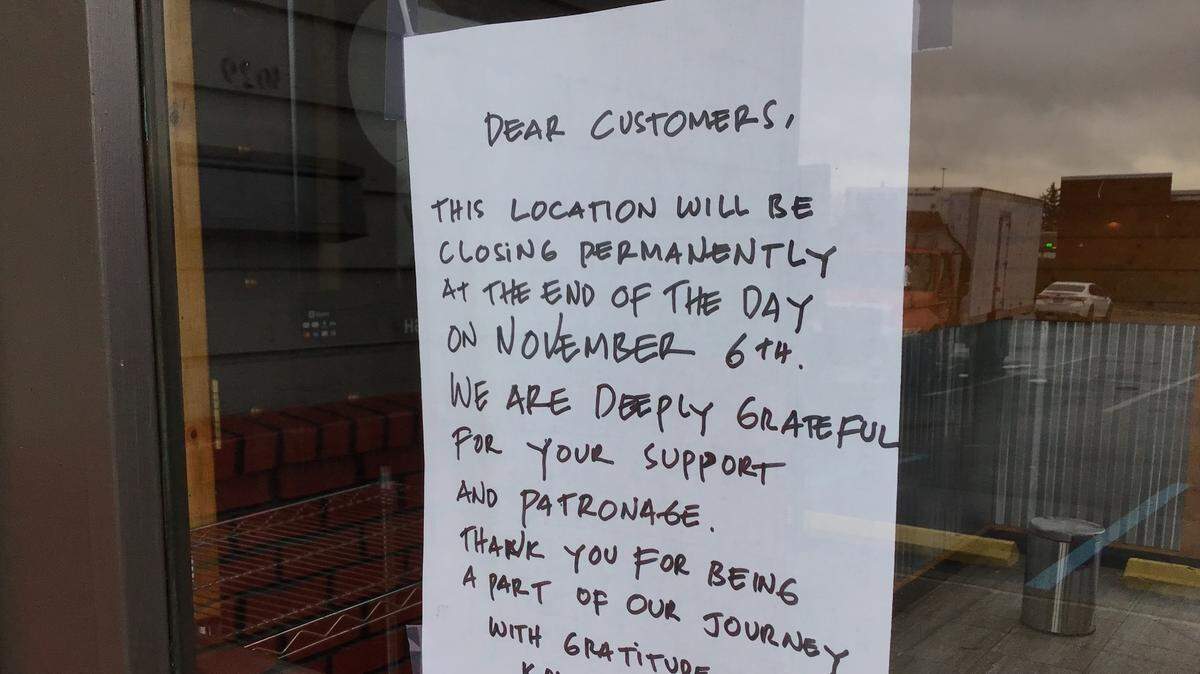 DEAR CUSTOMERS,
THIS LOCATION WILL BE
CLOSING PERMANENTLY
AT THE END OF THE DAY
ON NOVEMBER 6TH.
WE ARE DEEPLY GRATEFUL
FOR YOUR SUPPORT
AND PATRONAGE.
THANK YOU FOR BEING
A PART OF OUR JOURNEY
WITH GRATITUDE